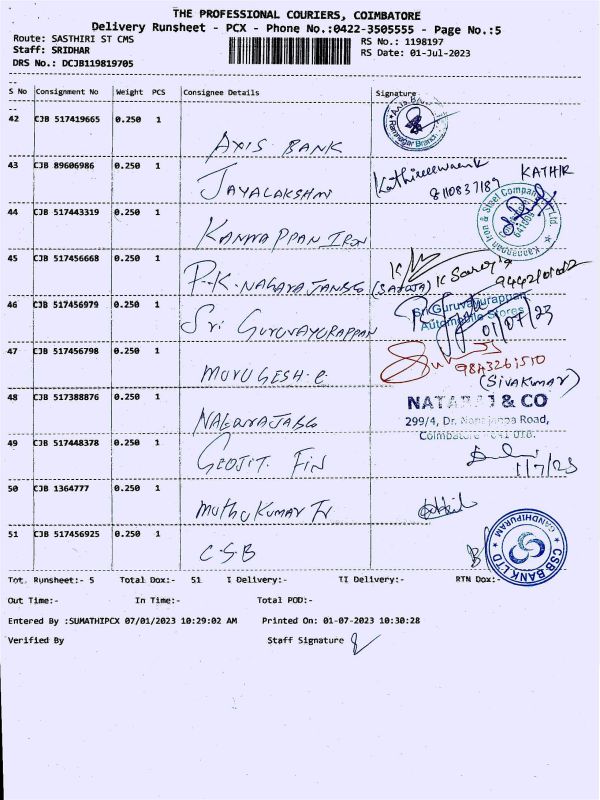 THE PROFESSIONAL COURIERS, COIMBATORE
Delivery Runsheet - PCX - Phone No.:0422-3505555 - Page No.:5
Route: SASTHIRI ST CMS RS No.: 1198197
Staff: SRIDHAR RS Date: 01-Jul-2023
DRS No.: DCJB119819705
S No Consignment No Weight PCS Consignee Details Signature
42 CJB 517419665 0.250 1
Ramnagar Branch
AXIS BANK
43 CJB 89606986 0.250 1
KATHIR
JAYALAKSHMI 8110837189
44 CJB 517443319 0.250 1
Kannappan Iron & Steel Company Pvt Ltd.
KANNAPPAN IRON
45 CJB 517456668 0.250 1
K Saroja
(SAROJA) 9442101012
46 CJB 517456979 0.250 1
Sri Guruvayurappan
Automobile Stores
Sri GURUVAYURAPPAN 01/07/23
47 CJB 517456798 0.250 1
9843261510
MURUGESH.C (SIVAKUMAR)
48 CJB 517388876 0.250 1
NATARAJ & CO
299/4, Dr. Nanjappa Road,
Coimbatore - 641 018.
49 CJB 517448378 0.250 1
GEOJIT. FIN 1/7/23
50 CJB 1364777 0.250 1
MUTHUKUMAR TV
51 CJB 517456925 0.250 1
CSB BANK LTD GANDHIPURAM
C.S.B
Tot. Runsheet:- 5 Total Dox:- 51 I Delivery:- II Delivery:- RTN Dox:-
Out Time:- In Time:- Total POD:-
Entered By :SUMATHIPCX 07/01/2023 10:29:02 AM Printed On: 01-07-2023 10:30:28
Verified By Staff Signature